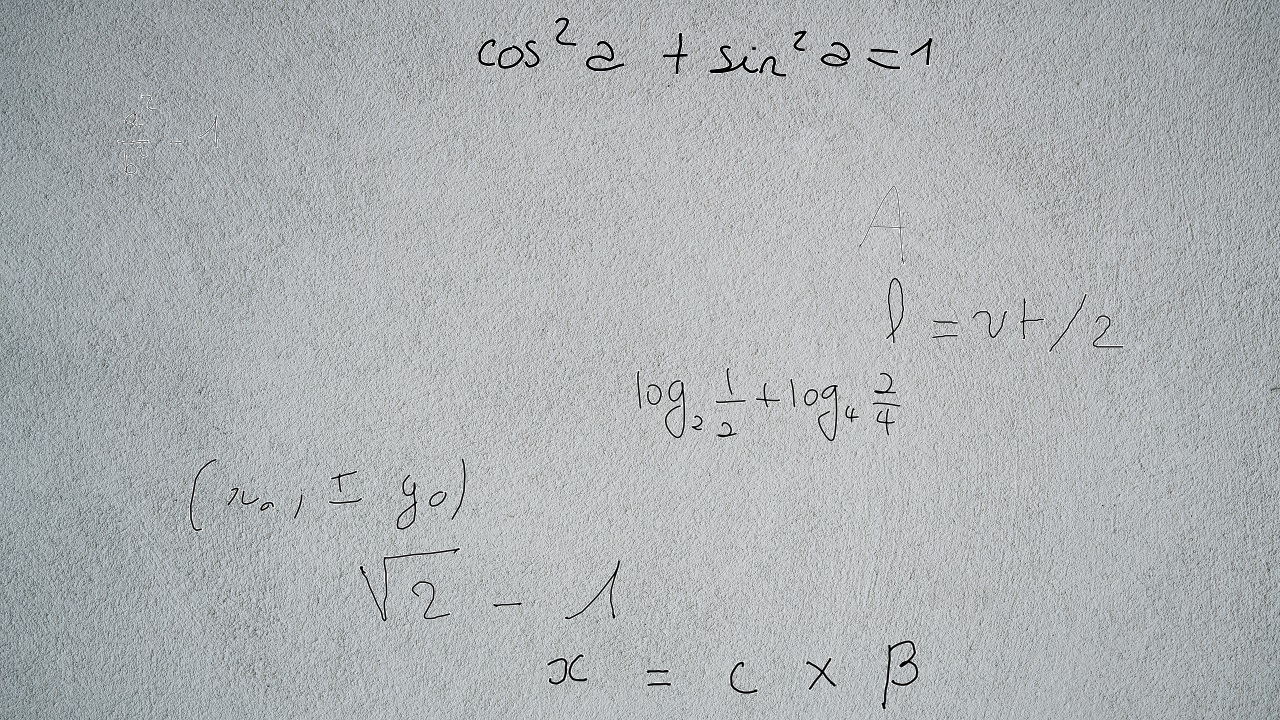 cos² a + sin² a = 1
A
l = vt/2
log₂ 1/2 + log₄ 2/4
(x₀, ± y₀)
√2 - 1
x = c × β